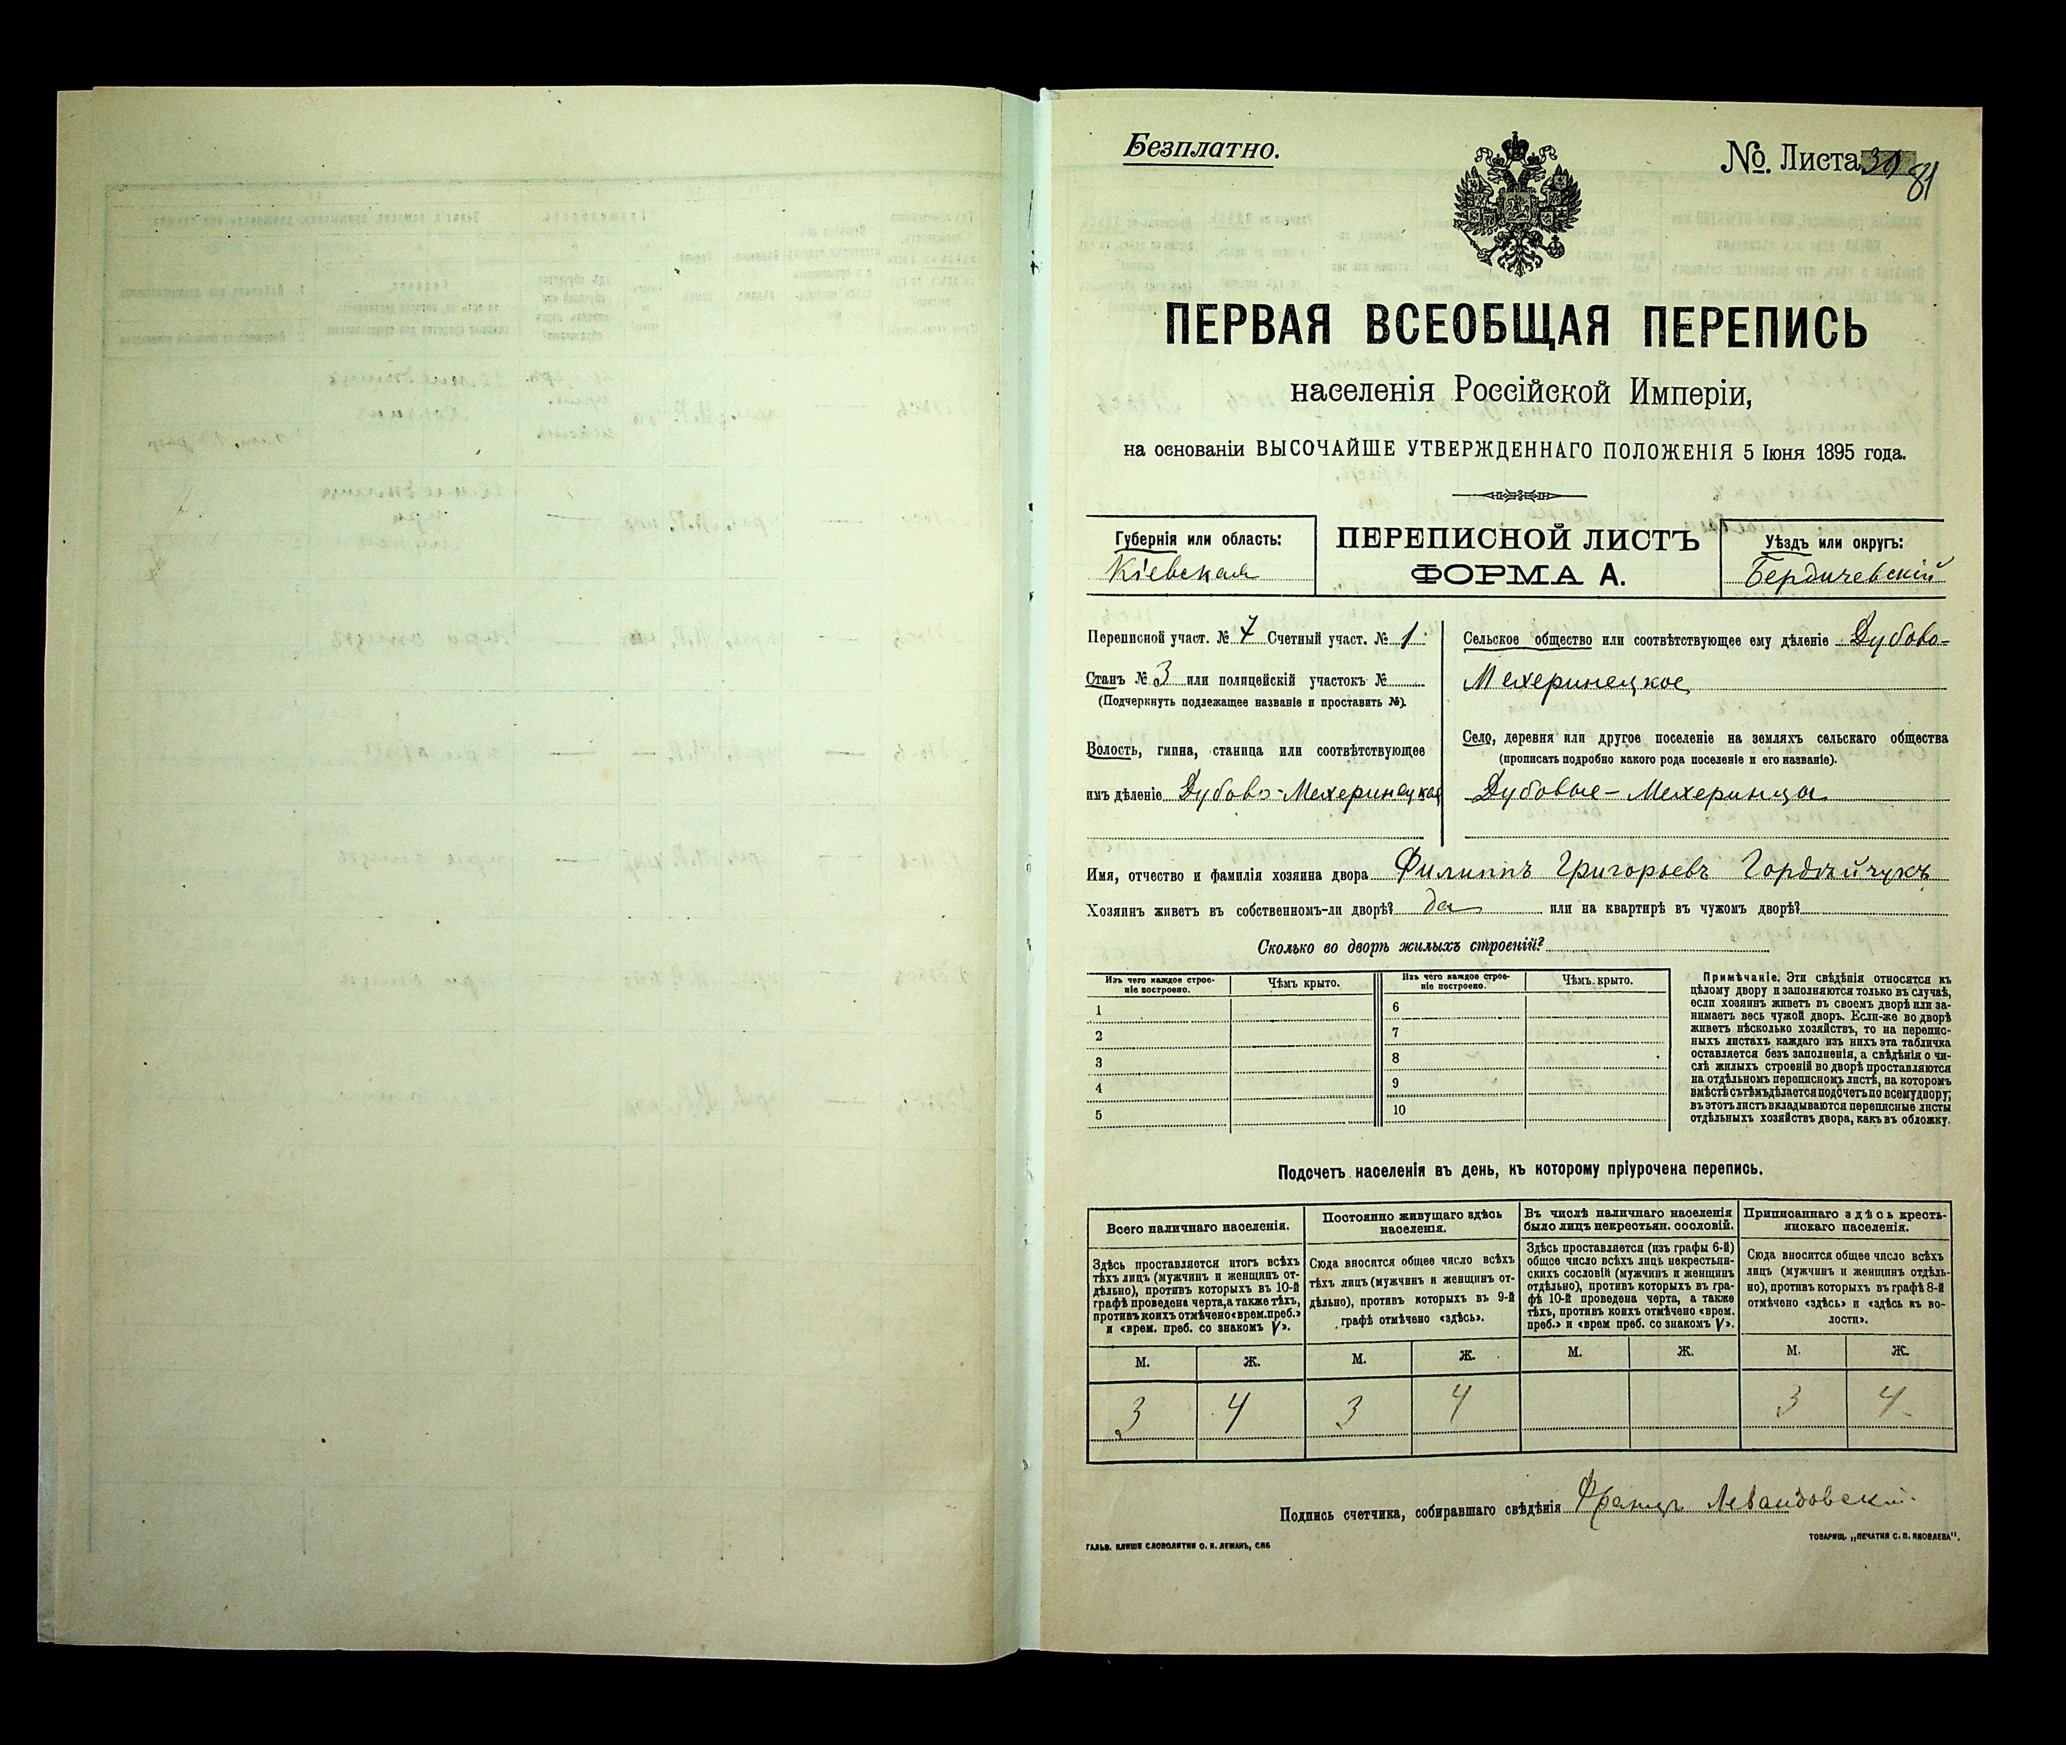 Безплатно.
№. Листа 81
ПЕРВАЯ ВСЕОБЩАЯ ПЕРЕПИСЬ
населенія Россійской Имперіи,
на основаніи ВЫСОЧАЙШЕ УТВЕРЖДЕННАГО ПОЛОЖЕНІЯ 5 Іюня 1895 года.
Губернія или область:
Кіевская
ПЕРЕПИСНОЙ ЛИСТЪ
ФОРМА А.
Уѣздъ или округъ:
Бердичевскій
Переписной участ. № 7 Счетный участ. № 1
Станъ № 3 или полицейскій участокъ №
(Подчеркнуть подлежащее названіе и проставить №).
Волость, гмина, станица или соотвѣтствующее
имъ дѣленіе Дубово-Мехеринецкая
Сельское общество или соотвѣтствующее ему дѣленіе Дубово-
Мехеринецкое
Село, деревня или другое поселеніе на земляхъ сельскаго общества
(прописать подробно какого рода поселеніе и его названіе).
Дубовые-Мехеринцы
Имя, отчество и фамилія хозяина двора Филиппъ Григорьевъ Гордѣйчукъ
Хозяинъ живетъ въ собственномъ-ли дворѣ? да или на квартирѣ въ чужомъ дворѣ?
Сколько во дворѣ жилыхъ строеній?
Изъ чего каждое строе-
ніе построено.
Чѣмъ крыто.
Изъ чего каждое строе-
ніе построено.
Чѣмъ крыто.
1
2
3
4
5
6
7
8
9
10
Примѣчаніе. Эти свѣдѣнія относятся къ
цѣлому двору и заполняются только въ случаѣ,
если хозяинъ живетъ въ своемъ дворѣ или за-
нимаетъ весь чужой дворъ. Если-же во дворѣ
живетъ нѣсколько хозяйствъ, то на перепис-
ныхъ листахъ каждаго изъ нихъ эта табличка
оставляется безъ заполненія, а свѣдѣнія о чи-
слѣ жилыхъ строеній во дворѣ проставляются
на отдѣльномъ переписномъ листѣ, на которомъ
вмѣстѣ съ тѣмъ дѣлается подсчетъ по всему двору;
въ этотъ листъ вкладываются переписные листы
отдѣльныхъ хозяйствъ двора, какъ въ обложку.
Подсчетъ населенія въ день, къ которому пріурочена перепись.
Всего наличнаго населенія.
Здѣсь проставляется итогъ всѣхъ
тѣхъ лицъ (мужчинъ и женщинъ от-
дѣльно), противъ которыхъ въ 10-й
графѣ проведена черта, а также тѣхъ,
противъ коихъ отмѣчено «врем. преб.»
и «врем. преб. со знакомъ V».
Постоянно живущаго здѣсь
населенія.
Сюда вносится общее число всѣхъ
тѣхъ лицъ (мужчинъ и женщинъ от-
дѣльно), противъ которыхъ въ 9-й
графѣ отмѣчено «здѣсь».
Въ числѣ наличнаго населенія
было лицъ некрестьян. сословій.
Здѣсь проставляется (изъ графы 6-й)
общее число всѣхъ лицъ некрестьян-
скихъ сословій (мужчинъ и женщинъ
отдѣльно), противъ которыхъ въ гра-
фѣ 10-й проведена черта, а также
тѣхъ, противъ коихъ отмѣчено «врем.
преб.» и «врем преб. со знакомъ V».
Приписаннаго здѣсь кресть-
янскаго населенія.
Сюда вносится общее число всѣхъ
лицъ (мужчинъ и женщинъ отдѣль-
но), противъ которыхъ въ графѣ 8-й
отмѣчено «здѣсь» и «здѣсь къ во-
лости».
М. Ж. М. Ж. М. Ж. М. Ж.
3 4 3 4 3 4
Подпись счетчика, собиравшаго свѣдѣнія Францъ Левандовскій
ГАЛЬВ. КЛИШЕ СЛОВОЛИТНИ О. И. ЛЕМАНЪ, СПБ
ТОВАРИЩ. „ПЕЧАТНЯ С. П. ЯКОВЛЕВА".